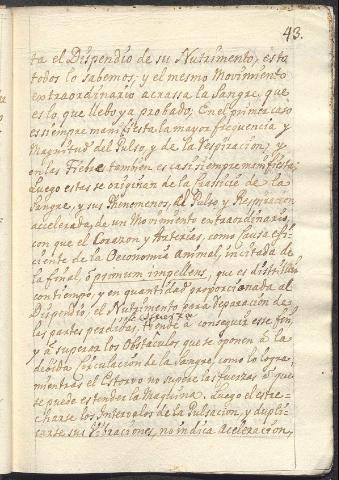 43.
ta el Dispendio de su Nutrimento, esto
todos lo sabemos, y el mesmo Movimiento
extraordinario acrassa la Sangre, que
es lo que llebo ya probado; En el primer caso
es siempre manifiesta la mayor frequencia y
Magnitud del Pulso, y de la Respiracion, y
en las Fiebres tambien es casi siempre manifiesta:
Luego estas se originan de la Crassicie de la
Sangre, y sus Phenomenos, al Pulso y Respiracion
accelerada, de un Movimiento extraordinario,
con que el Corazon y Arterias, como causa efi-
ciente de la Oeconomia Animal, incitada de
la final, ò primum impellens, que es distribuir
con tiempo, y en quantidad proporcionada al
Dispendio, el Nutrimento para reparacion de
las partes perdidas, se esfuerza
tiende à conseguir esse fin,
y à superar los Obstaculos que se oponen à la
debida Circulacion de la Sangre, como lo logra
mientras el Estorvo no supere las fuerzas, ò que
se puede extender la Maquina. Luego el estre-
charse los Intervalos de la Pulsacion, y dupli-
carse sus Vibraciones, no indica Aceleracion,